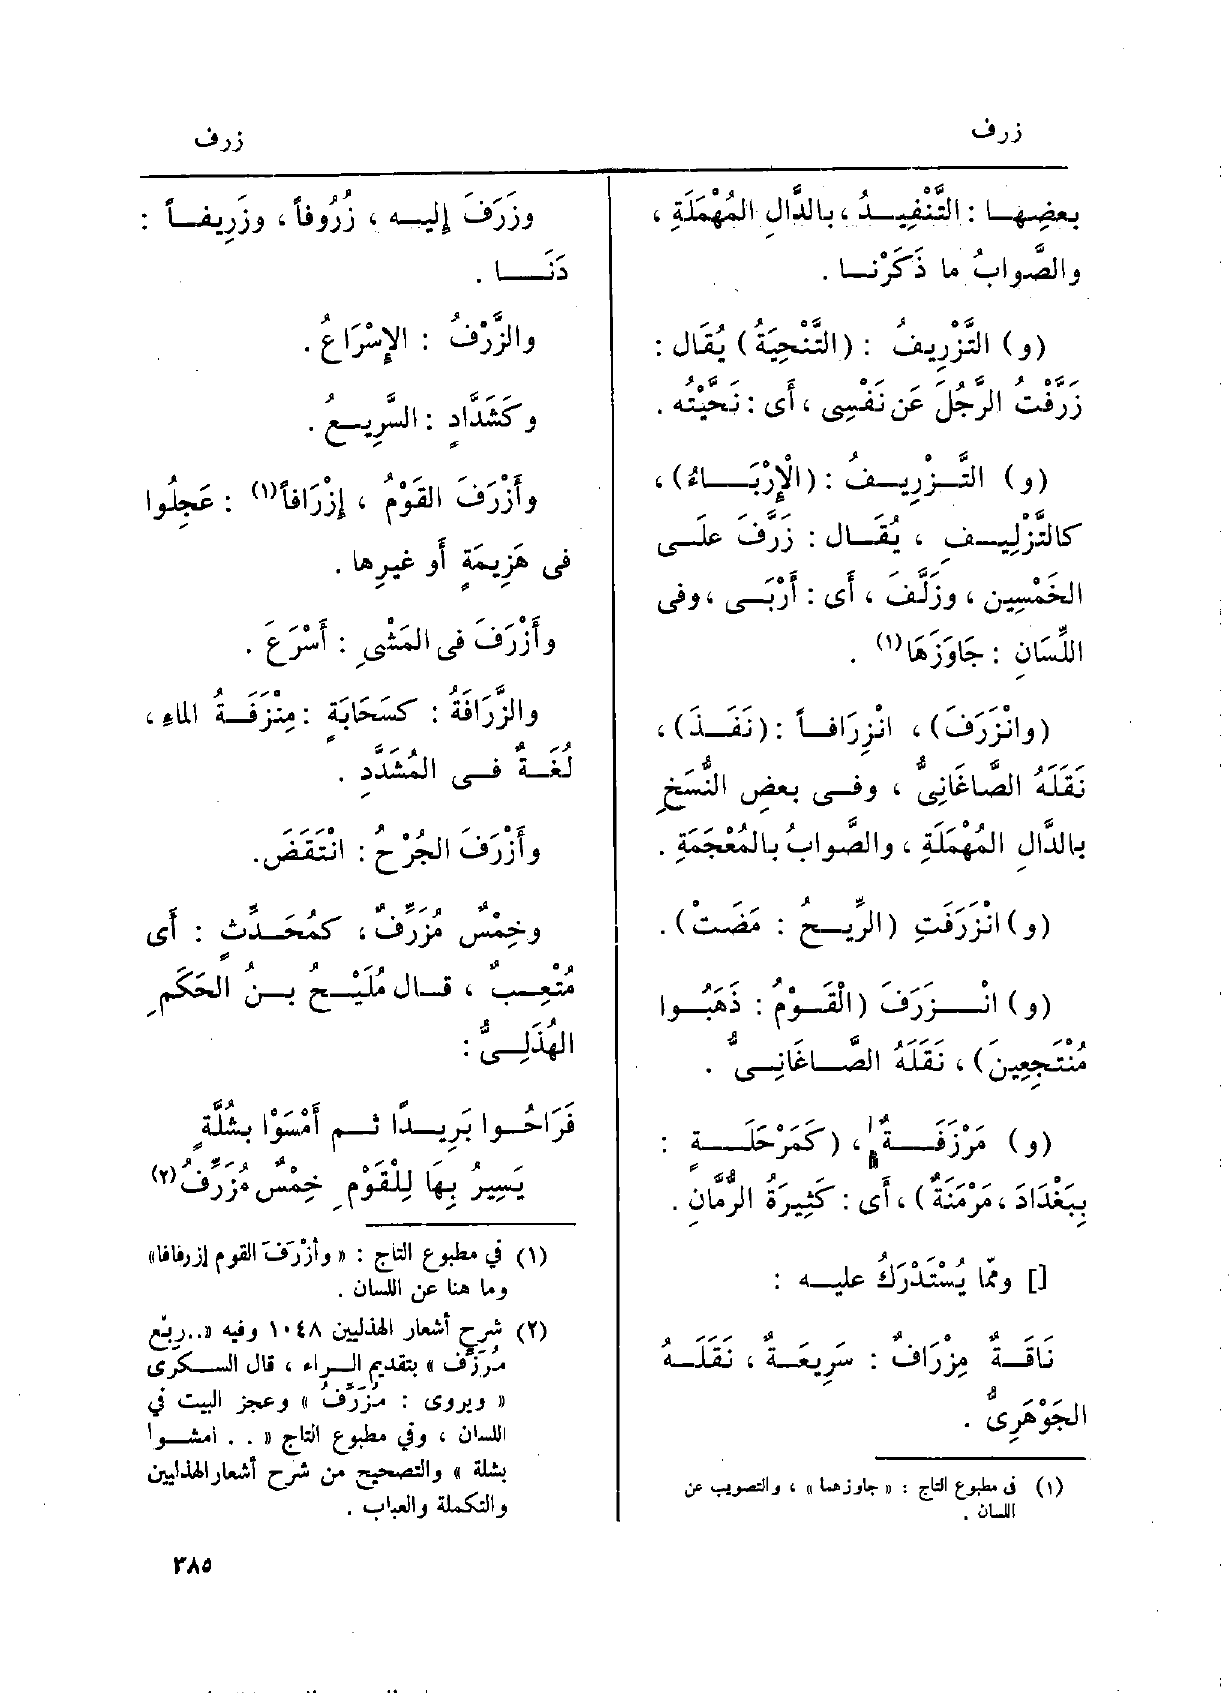 زرف
زرف
بعضِهـا : التَّنْفِيـدُ ، بالدَّالِ المُهْمَلَةِ ،
والصَّوابُ ما ذَكَرْنـا .
(و) التَّزْرِيفُ : (التَّنْحِيَةُ) يُقَال :
زَرَّفْتُ الرَّجُلَ عَن نَفْسِى ، أَى : نَحَّيْتُه .
(و) التَّـزْرِيـفُ : (الْإِرْبَـاءُ) ،
كالتَّزْلِيـفِ ، يُقَـال : زَرَّفَ علَـى
الخَمْسِين ، وزَلَّفَ ، أَى : أَرْبَـى ، وفى
اللِّسَانِ : جَاوَزَهَا(١) .
(وانْزَرَفَ) ، انْزِرَافـاً : (نَفَـذَ) ،
نَقَلَهُ الصَّاغَانِىُّ ، وفـى بعضِ النُّسَخِ
بالدَّالِ المُهْمَلَةِ ، والصَّوابُ بالمُعْجَمَةِ .
(و) انْزَرَفَتِ (الرِّيـحُ : مَضَتْ) .
(و) انْـزَرَفَ (الْقَـوْمُ : ذَهَبُـوا
مُنْتَجِعِينَ) ، نَقَلَهُ الصَّـاغَانِـىُّ .
(و) مَرْزَفَـةُ ، (كَمَرْحَلَـةٍ :
بِبَغْدَادَ ، مَرْمَنَةٌ) ، أَى : كَثِيرَةُ الرُّمَّانِ .
[] وممّا يُسْتَدْرَكُ عليـه :
نَاقَـةٌ مِزْرَافٌ : سَرِيعَـةٌ ، نَقَلَـهُ
الجَوْهَرِىُّ .
(١) فى مطبوع التاج : « جاوزهما » ، والتصويب عن
اللسان .
وزَرَفَ إليـه ، زُرُوفاً ، وزَرِيفـاً :
دَنَـا .
والزَّرْفُ : الإِسْرَاعُ .
وكَشَدَّادٍ : السَّرِيـعُ .
وأَزْرَفَ القَوْمُ ، إِزْرَافاً(١) : عَجِلُوا
فى هَزِيمَةٍ أَو غيرِها .
وأَزْرَفَ فى المَشْىِ : أَسْرَعَ .
والزَّرَافَةُ : كسَحَابَةٍ : مِنْزَفَـةُ الماءِ ،
لُغَـةٌ فـى المُشَدَّدِ .
وأَزْرَفَ الجُرْحُ : انْتَقَضَ.
وخِمْسٌ مُزَرِّفٌ ، كمُحَـدِّثٍ : أَى
مُتْعِـبٌ ، قـال مُلَيْـحُ بـنُ الحَكَمِ
الهُذَلِـىُّ :
فَرَاحُـوا بَرِيـدًا ثـم أَمْسَوْا بشُلَّةٍ
يَسِيرُ بِهَا لِلْقَوْمِ خِمْسٌ مُزَرِّفُ(٢)
(١) في مطبوع التاج : « وأزْرَفَ القوم إزرفافا»
وما هنا عن اللسان .
(٢) شرح أشعار الهذليين ١٠٤٨ وفيه «..رِبْع
مُرَزِّف » بتقديم الـراء ، قال السـكرى
« ويروى : مُزَرِّفُ » وعجز البيت في
اللسان ، وفي مطبوع التاج « . . امشـوا
بشلة » والتصحيح من شرح أشعار الهذليين
والتكملة والعباب .
٣٨٥